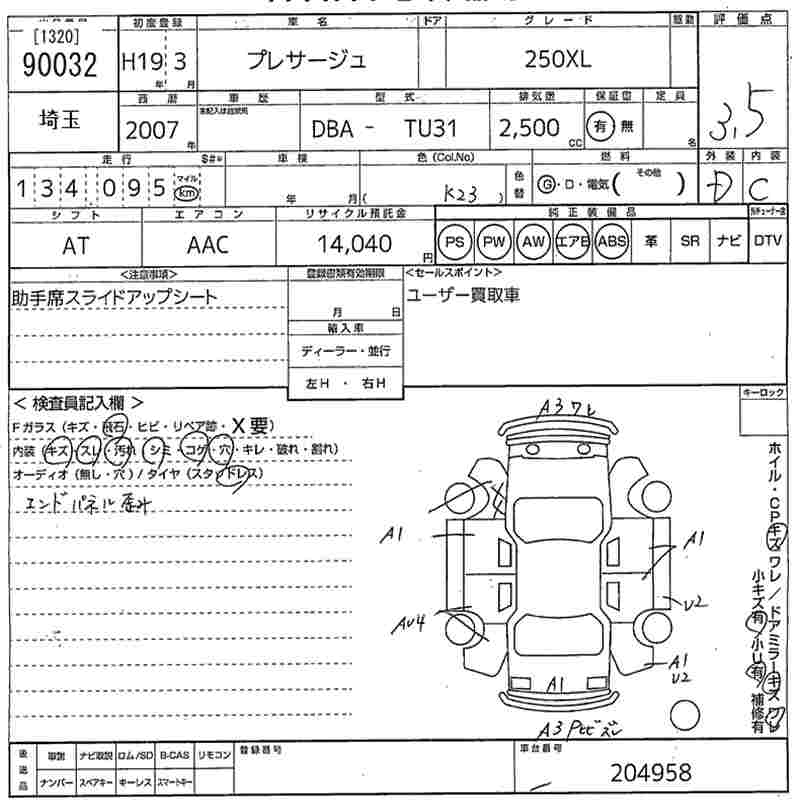 [1320]
90032
初度登録
H19 3
年 月
車名
プレサージュ
ドア
グレード
250XL
駆動
評価点
3.5
埼玉
西暦
2007
年
車歴
型式
DBA - TU31
排気量
2,500
CC
保証書
有・無
定員
名
走行
134,095
マイル
km
車検
年 月
色 (Col.No)
( K23 )
色替
燃料
G・D・電気 (その他 )
外装
D
内装
C
シフト
AT
エアコン
AAC
リサイクル預託金
14,040
円
純正装備品
PS PW AW エアB ABS 革 SR ナビ DTV
<注意事項>
助手席スライドアップシート
登録書類有効期限
月 日
輸入車
ディーラー・並行
左H ・ 右H
<セールスポイント>
ユーザー買取車
< 検査員記入欄 >
Fガラス (キズ・飛石・ヒビ・リペア跡・X要)
内装 (キズ・スレ・汚れ・シミ・コゲ・穴・キレ・破れ・割れ)
オーディオ (無し・穴) / タイヤ (スタッドレス)
エンドパネル歪み
キーロック
A3ワレ
A1
A1
AU4
U2
A1
U2
A1
A3
ホイル・CPキズワレ/ドアミラーキズワレ
小キズ有/小U有/補修有
後送品
車検 ナビ取説 ロム/SD B-CAS リモコン
ナンバー スペアキー キーレス スマートキー
登録番号
車台番号
204958